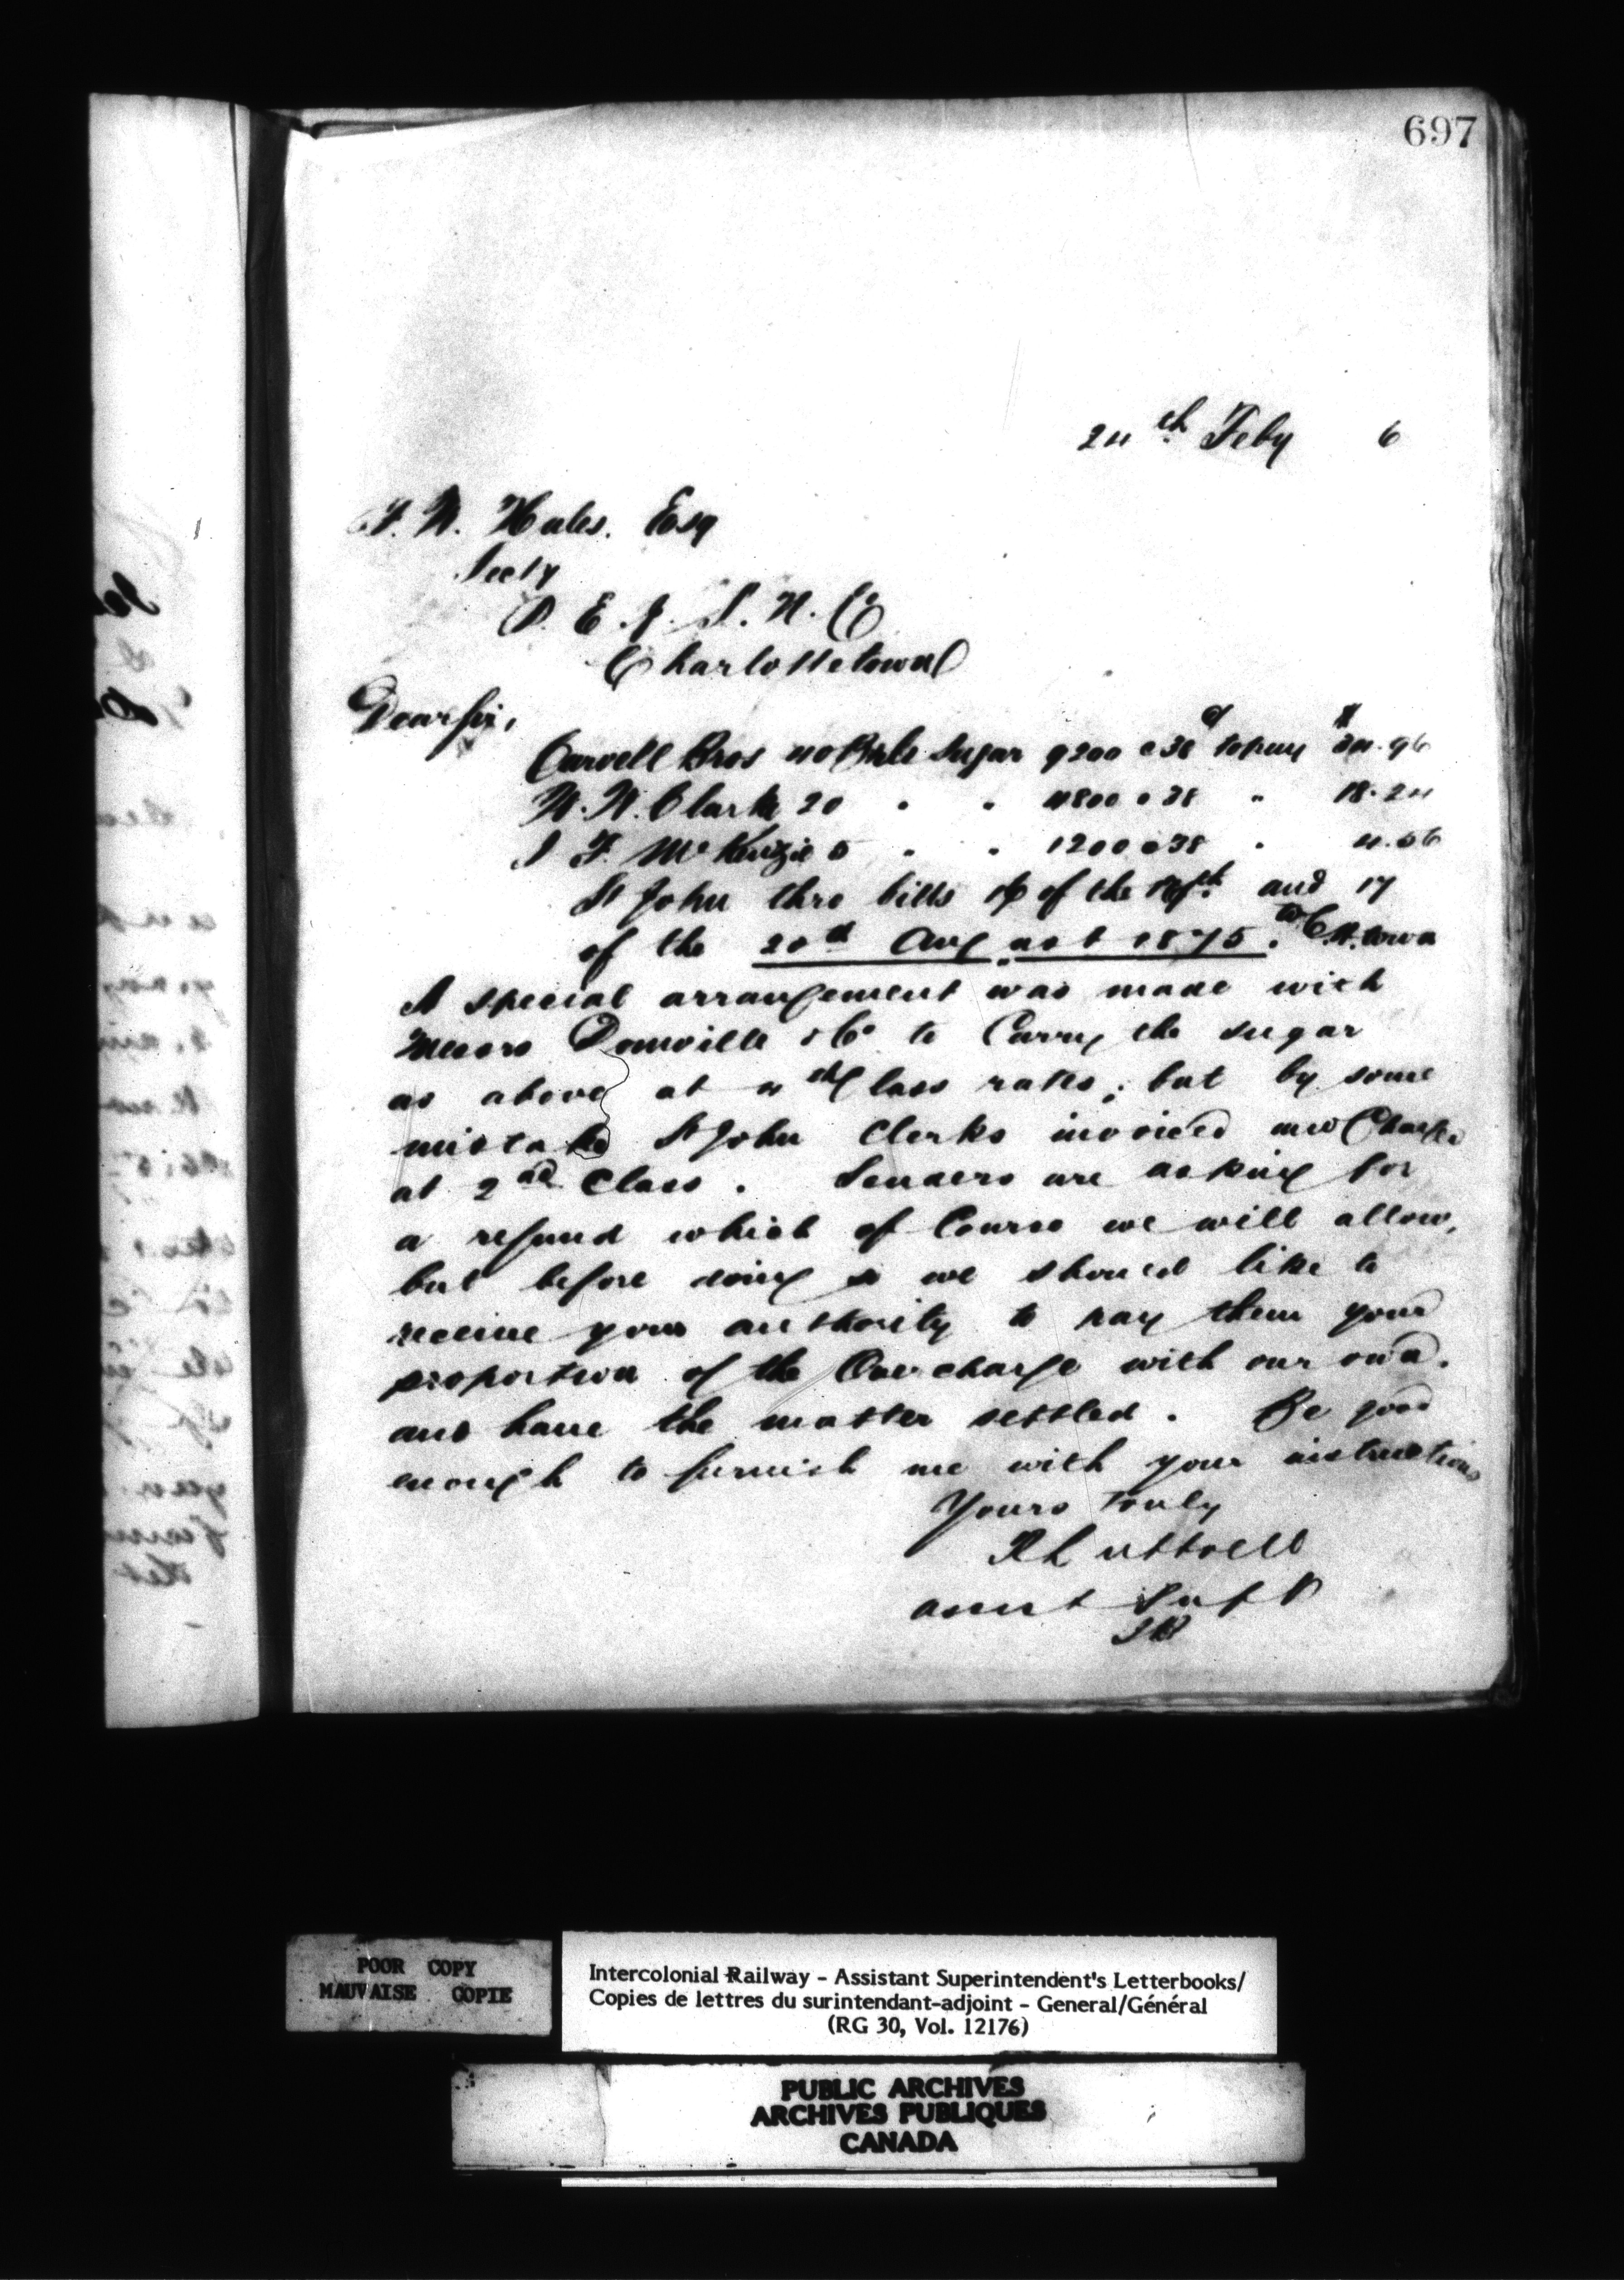 697
24th Feby 6
F. W. Hales. Esq
Secty
P. E. I. S. N. Co
Charlottetown
Dear Sir,
Carvell Bros 40 Brls Sugar 9200 @ 38¢ to pay $34.96
W. W. Clark 20 " " 4800 @ 38 " 18.24
F. McKenzie 5 " " 1200 @ 38 " 4.56
St John thro bills of the and 17
of the 20th August 1875. to Ch. town
A special arrangement was made with
Messrs Domville & Co to Carry the sugar
as above at 4th Class rates; but by some
mistake St John Clerks invoiced and Charged
at 2nd Class. Senders are asking for
a refund which of Course we will allow,
but before doing so we should like to
receive your authority to pay them your
proportion of the Overcharge with our own.
and have the matter settled. Be good
enough to furnish me with your instructions
Yours truly
R Luttrell
Asst Supt
POOR COPY
MAUVAISE COPIE
Intercolonial Railway - Assistant Superintendent's Letterbooks/
Copies de lettres du surintendant-adjoint - General/Général
(RG 30, Vol. 12176)
PUBLIC ARCHIVES
ARCHIVES PUBLIQUES
CANADA